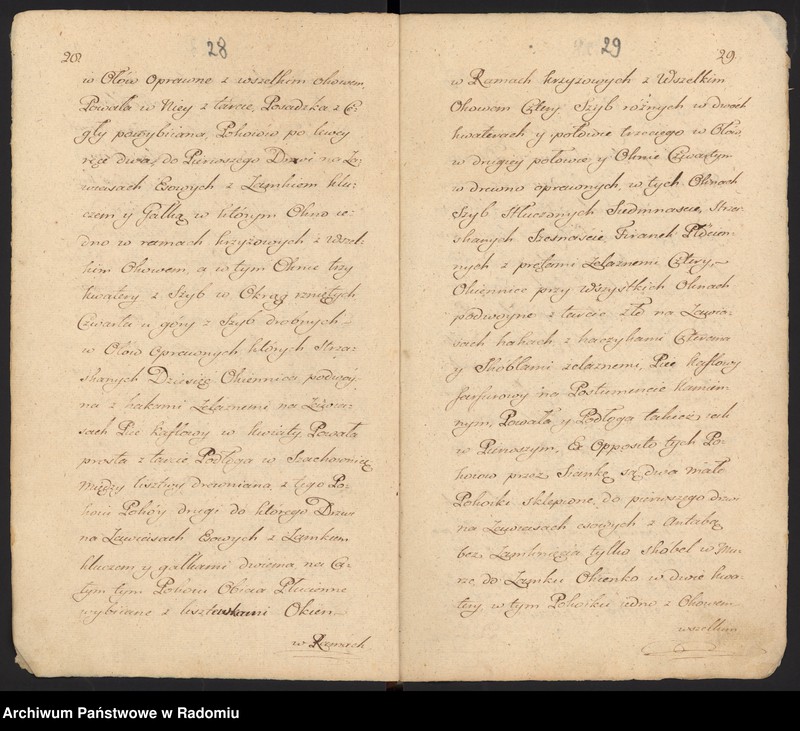 28.
28
w Ołów oprawne z wszelkim okowem
Powała w Niey z tarcic, Posadzka z Ce-
gły powybiiana, Pokoiow po lewey
ręce dwa, do Pierwszego Drzwi na Za-
wiasach Esowych z Zamkiem klu-
czem y Gałką, w którym Okno ie-
dno w ramach krzyżowych z Wszel-
kim Okowem, a w tym Oknie trzy
kwatery z Szyb w Okrąg rzniętych
Czwarta u góry z Szyb drobnych
w Ołów Oprawnych, których Strza-
skanych Dziesięć Okiennica podwóy-
na z hakami żelaznemi na Zawia-
sach Piec kaflowy w kwiaty, Powała
prosta z tarcic Podłoga w Szachownicę
między lisztwy drewniana, z tego Po-
koiu Pokóy drugi do którego Drzwi
na Zawiasach Esowych z Zamkiem
kluczem y gałkami dwiema, na Ca-
łym tym Pokoiu Obicia Płucienne
wybiiane z lisztwkami Okien
w Ramach
29
29.
w Ramach krzyżowych z Wszelkim
Okowem Cztery Szyb rożnych w dwóch
kwaterach y połowie trzeciego w Ołów,
w drugiey połowie, y Oknie Czwartym
w drewno oprawnych, w tych Oknach
Szyb Stłuczonych Siedmnaście, Strza-
skanych Szesnaście, Firanek Płócien-
nych z prętami żelaznemi Cztery,
Okiennice przy wszystkich Oknach
podwoyne z tarcic złe na Zawia-
sach hakach, z haczykami Czterema
y Skoblami żelaznemi, Piec kaflowy
farfurowy na Postumencie kamien-
nym, Powała y Podłoga takież iak
w Pierwszym, Ex Opposito tych Po-
koiow przez Sionkę są dwa małe
Pokoiki sklepione, do pierwszego drzwi
na Zawiasach esowych z Antabą
bez Zamknięcia tylko skobel w Mu-
rze do Zamku Okienko w dwie kwa-
tery w tym Pokoiku iedno z Okowem
wszelkim
Archiwum Państwowe w Radomiu